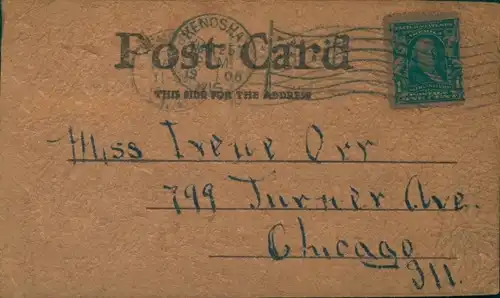 Post Card
KENOSHA
25
M
19 06
WIS
THIS SIDE FOR THE ADDRESS
Miss Irene Orr
799 Turner Ave.
Chicago
Ill.